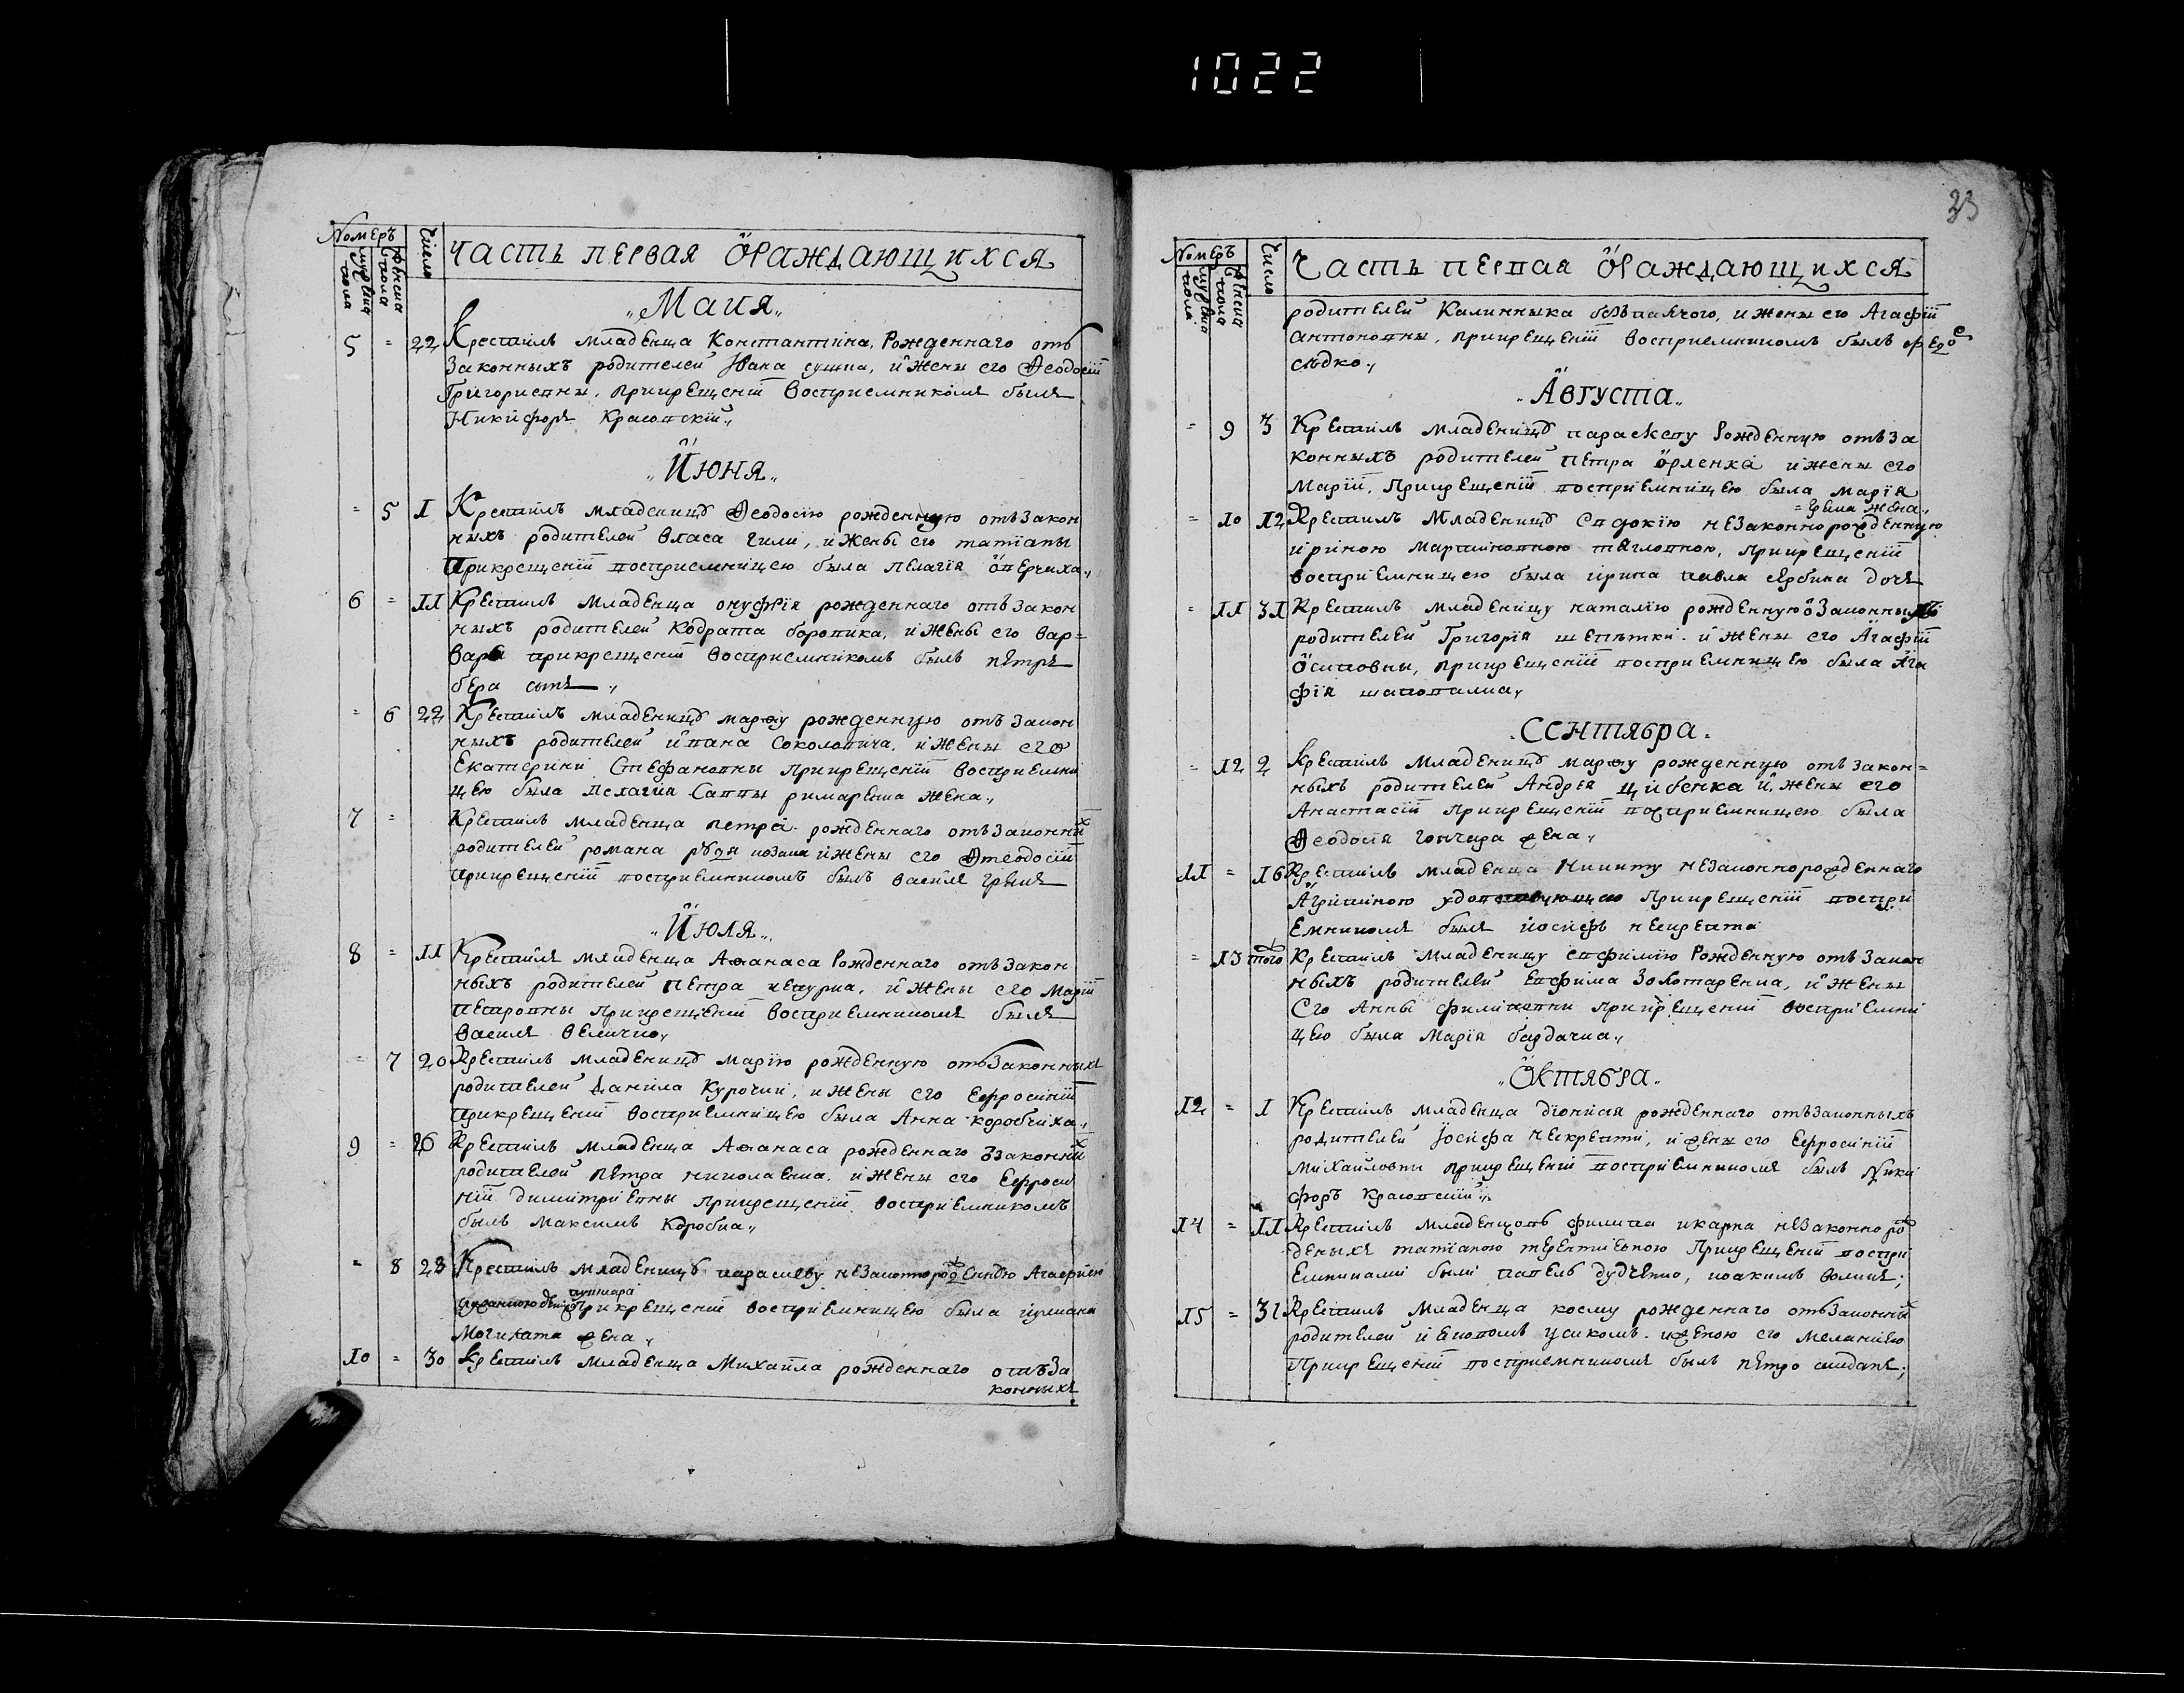 1022
Номеръ
Число
часть первая ораждающихся
мужеска пола
женска пола
Маия
5 = 22 Крестилъ младенца Константина, Рожденнаго отъ
законныхъ родителей Ивана сушка, и жены его Ѳеодосіи
Григориевны, прикрещеніи восприемникомъ былъ
Никифоръ Красовскій
Июня
= 5 1 Крестилъ младеницу Ѳеодосію рожденную отъ закон
ныхъ родителей Власа гили, и жены его татіаны
Прикрещеніи восприемницею была Пелагія
6 = 11 Крестилъ младенца онуфрія рожденнаго отъ закон
ныхъ родителей Кодрата боровика, и жены его Вар=
вары прикрещеніи восприемникомъ былъ петръ
сынъ
= 6 22 Крестилъ младеницу марѳу рожденную отъ закон
ныхъ родителей ивана Соколовича, и жены его
Екатерини Стефановны прикрещеніи восприемни
цею была Пелагия Саввы римаренка жена
7 = Крестилъ младенца петра рожденнаго отъ законны
родителей романа козака и жены его Ѳтеодосіи
прикрещеніи восприемникомъ былъ василь
Июля
8 = 11 Крестилъ младенца Аѳанаса Рожденнаго отъ закон
ныхъ родителей петра и жены его Маріи
петровны прикрещеніи восприемникомъ былъ
василъ величко
= 7 20 Крестилъ младеницу марію рожденную отъ законныхъ
родителей данила Курочки, и жены его Ефросиніи
прикрещеніи восприемницею была Анна коробчиха
9 = 26 Крестилъ младенца Аѳанаса рожденнаго законны
родителей петра николаенка, и жены его Ефроси
ніи димитріевны прикрещеніи восприемникомъ
былъ максимъ Коробка
= 8 28 Крестилъ младеницу параскеву незаконнорожденную Агафиею
прикрещеніи восприемницею была
жена
10 = 30 Крестилъ младенца Михаила рожденнаго отъ за
конныхъ
23
Номеръ
Число
Часть первая ораждающихся
мужеска пола
женска пола
родителей Калинника и жены его Агафіи
антоновны, прикрещеніи восприемникомъ былъ
сѣдко
Августа
= 9 3 Крестилъ младеницу параскеву рожденную отъ за
конныхъ родителей петра орленка и жены его
Маріи, прикрещеніи восприемницею была марія
жена
= 10 12 Крестилъ младеницу Евдокію незаконнорожденную
іриною мартиновною прикрещеніи
восприемницею была ірина павла дочь
= 11 31 Крестилъ младеницу наталію рожденную законныхъ
родителей Григорія шепѣтки и жены его Агафіи
Осиповны, прикрещеніи восприемницею была Ага
фія шаповалка
Сентября
= 12 2 Крестилъ младеницу марѳу рожденную отъ закон=
ныхъ родителей Андрея цибенка и жены его
Анастасіи прикрещеніи восприемницею была
Ѳеодосія гончара жена
11 = 16 Крестилъ младенца Никиту незаконнорожденнаго
прикрещеніи воспри
емникомъ былъ иосифъ некрета
= 13 того Крестилъ младеницу евфимію Рожденную отъ закон
ныхъ родителей Евфима Золотаренка, и жены
его Анны филиповны прикрещеніи восприемни
цею была марія бардачка
Октября
12 = 1 Крестилъ младенца діонисія рожденнаго отъ законныхъ
родителей иосифа некрети, и жены его Ефросиніи
михайловни прикрещеніи восприемникомъ былъ Ники
форъ Красовскій
14 = 11 Крестилъ младенцовъ филипа икарпа незаконно ро
деныхъ татіаною терентиевною прикрещеніи воспри
емниками были павелъ дудченко, иоакимъ
15 = 31 Крестилъ младенца косму рожденнаго отъ законны
родителей усикомъ, и женою его меланиею
прикрещеніи восприемникомъ былъ петро